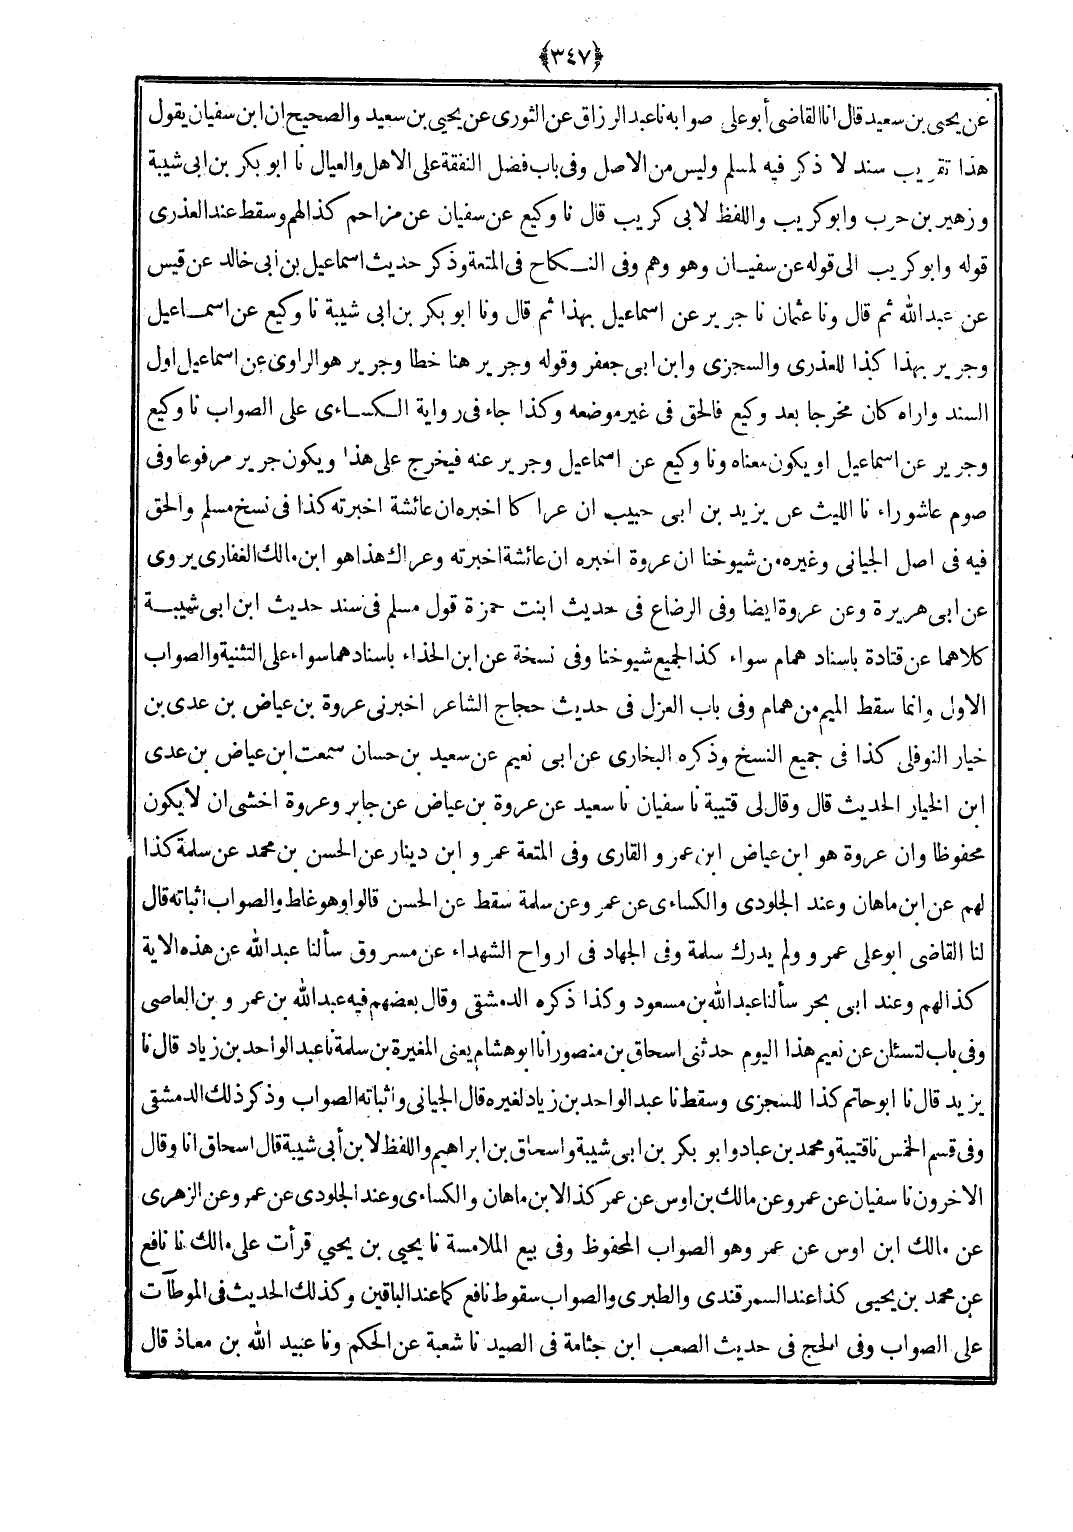 ﴿٣٤٧﴾
عن يحيى بن سعيد قال انا القاضى أبو على صوابه نا عبد الرزاق عن الثورى عن يحيى بن سعيد والصحيح ان ابن سفيان يقول
هذا تقريب سند لا ذكر فيه لمسلم وليس من الاصل وفى باب فضل النفقة على الاهل والعيال نا ابو بكر بن ابى شيبة
وزهير بن حرب وابو كريب واللفظ لابى كريب قال نا وكيع عن سفيان عن مزاحم كذا لهم وسقط عند العذرى
قوله وابو كريب الى قوله عن سفيان وهو وهم وفى النكاح فى المتعة وذكر حديث اسماعيل بن ابى خالد عن قيس
عن عبد الله ثم قال ونا عثمان نا جرير عن اسماعيل بهذا ثم قال ونا ابو بكر بن ابى شيبة نا وكيع عن اسماعيل
وجرير بهذا كذا للعذرى والسجزى وابن ابى جعفر وقوله وجرير هنا خطا وجرير هو الراوى عن اسماعيل اول
السند واراه كان مخرجا بعد وكيع فالحق فى غير موضعه وكذا جاء فى رواية الكساءى على الصواب نا وكيع
وجرير عن اسماعيل او يكون معناه ونا وكيع عن اسماعيل وجرير عنه فيخرج على هذا ويكون جرير مرفوعا وفى
صوم عاشوراء نا الليث عن يزيد بن ابى حبيب ان عراكا اخبره ان عائشة اخبرته كذا فى نسخ مسلم والحق
فيه فى اصل الجيانى وغيره من شيوخنا ان عروة اخبره ان عائشة اخبرته وعراك هذا هو ابن مالك الغفارى يروى
عن ابى هريرة وعن عروة ايضا وفى الرضاع فى حديث ابنت حمزة قول مسلم فى سند حديث ابن ابى شيبة
كلاهما عن قتادة باسناد همام سواء كذا لجميع شيوخنا وفى نسخة عن ابن الحذاء باسنادهما سواء على التثنية والصواب
الاول وانما سقط الميم من همام وفى باب العزل فى حديث حجاج الشاعر اخبرنى عروة بن عياض بن عدى بن
خيار النوفلى كذا فى جميع النسخ وذكره البخارى عن ابى نعيم عن سعيد بن حسان سمعت ابن عياض بن عدى
ابن الخيار الحديث قال وقال لى قتيبة نا سفيان نا سعيد عن عروة بن عياض عن جابر وعروة اخشى ان لا يكون
محفوظا وان عروة هو ابن عياض ابن عمرو القارى وفى المتعة عمرو ابن دينار عن الحسن بن محمد عن سلمة كذا
لهم عن ابن ماهان وعند الجلودى والكساءى عن عمر وعن سلمة سقط عن الحسن قالوا وهو غلط والصواب اثباته قال
لنا القاضى ابو على عمرو ولم يدرك سلمة وفى الجهاد فى ارواح الشهداء عن مسروق سألنا عبد الله عن هذه الاية
كذا لهم وعند ابى بحر سألنا عبد الله بن مسعود وكذا ذكره الدمشقى وقال بعضهم فيه عبد الله بن عمرو بن العاصى
وفى باب لتسئلن عن نعيم هذا اليوم حدثنى اسحاق بن منصور انا ابو هشام يعنى المغيرة بن سلمة نا عبد الواحد بن زياد قال نا
يزيد قال نا ابو حاتم كذا للسجزى وسقط نا عبد الواحد بن زياد لغيره قال الجيانى واثباته الصواب وذكر ذلك الدمشقى
وفى قسم الخمس نا قتيبة ومحمد بن عباد وابو بكر بن ابى شيبة واسحاق بن ابراهيم واللفظ لا بن أبى شيبة قال اسحاق انا وقال
الاخرون نا سفيان عن عمرو عن مالك بن اوس عن عمر كذا لابن ماهان والكساءى وعند الجلودى عن عمر وعن الزهرى
عن مالك ابن اوس عن عمر وهو الصواب المحفوظ وفى بيع الملامسة نا يحيى بن يحيى قرأت على مالك نا نافع
عن محمد بن يحيى كذا عند السمرقندى والطبرى والصواب سقوط نافع كما عند الباقين وكذلك الحديث فى الموطآت
على الصواب وفى الحج فى حديث الصعب ابن جثامة فى الصيد نا شعبة عن الحكم ونا عبيد الله بن معاذ قال